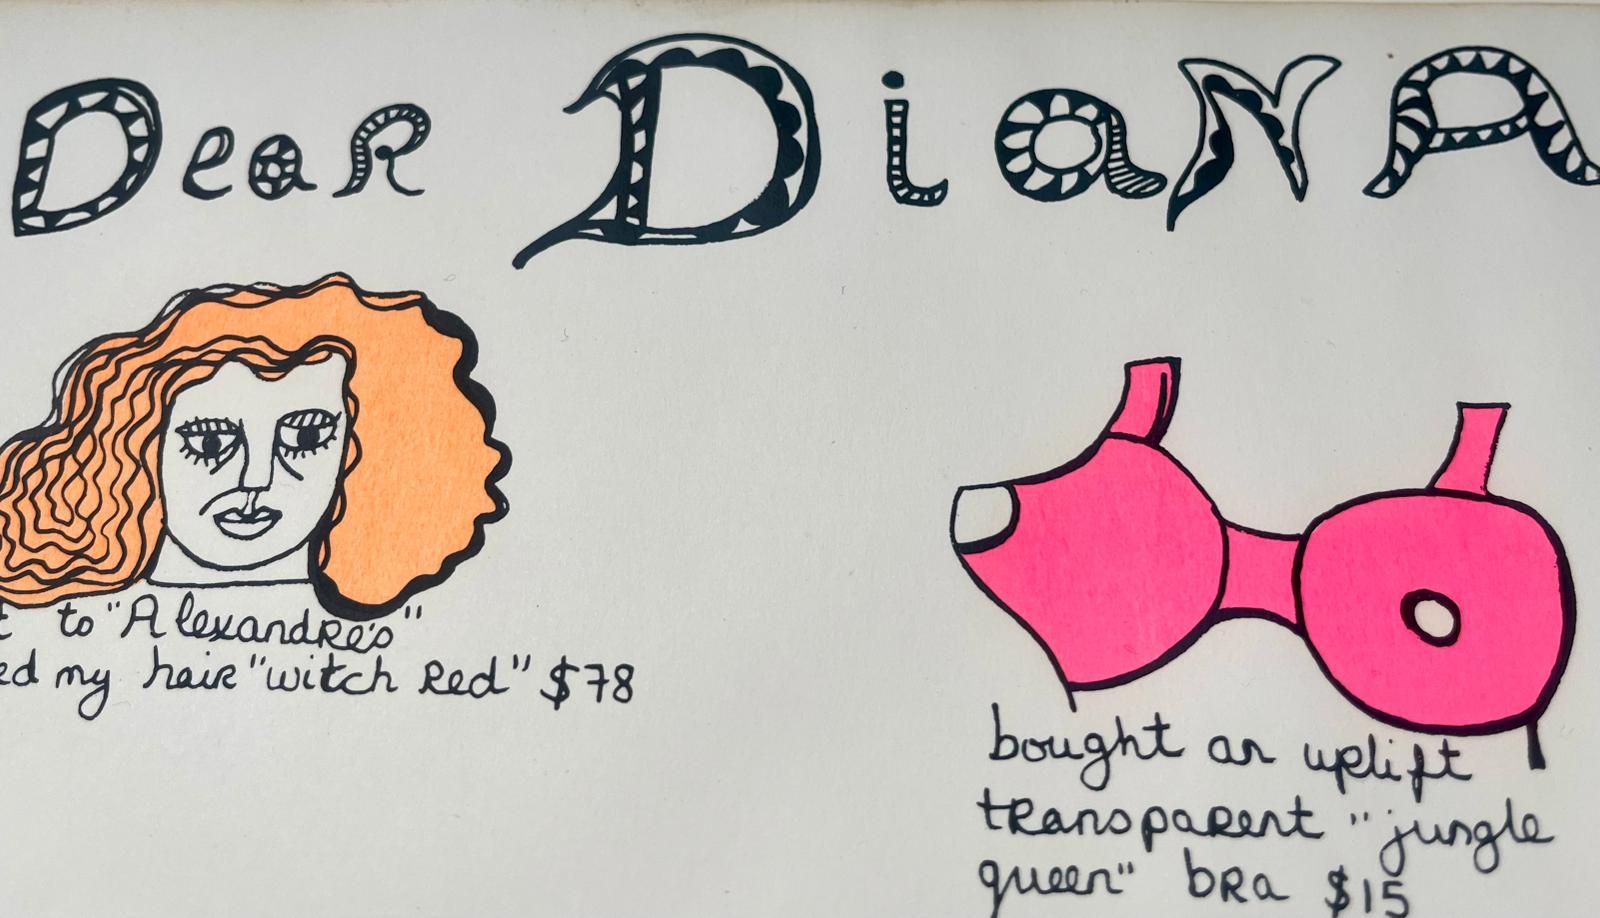 Dear Diana
t to "Alexandre's"
ed my hair "witch red" $78
bought an uplift
transparent "jungle
queen" bra $15